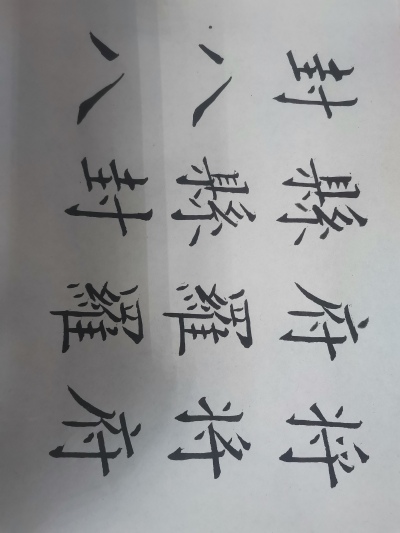 将将府
府羅羅
縣縣封
封八八